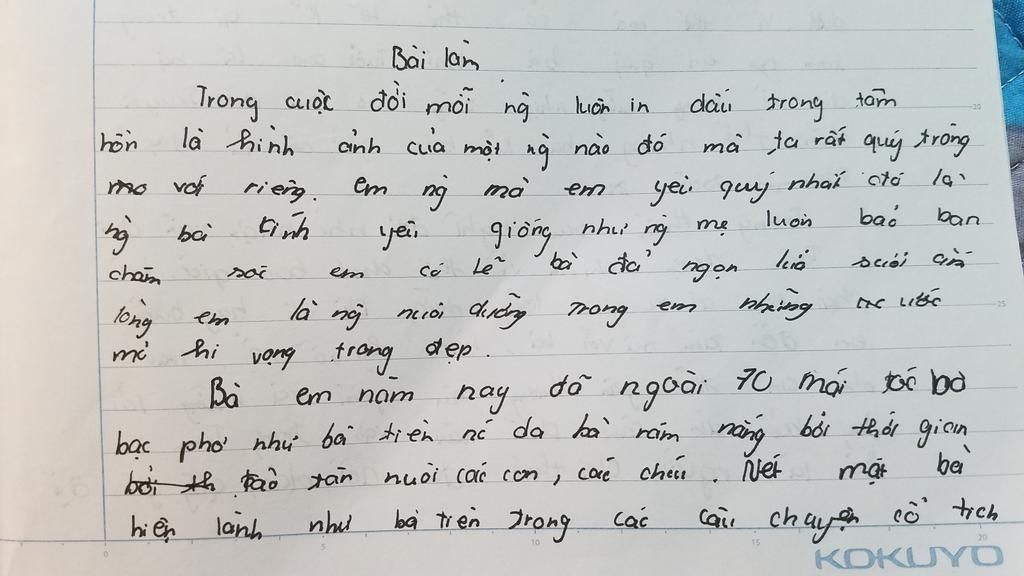 Bài làm
Trong cuộc đời mỗi ng luôn in dấu trong tâm
hồn là hình ảnh của một ng nào đó mà ta rất quý trọng
với riêng em ng mà em yêu quý nhất đó là
ng bà kính yêu giống như ng mẹ luôn bảo ban
chăm sóc em có lẽ bà đã ngọn lửa sưởi ấm
lòng em là ng nuôi dưỡng trong em những ước
mơ hi vọng trong đẹp.
Bà em năm nay đã ngoài 70 mái tóc bà
bạc phơ như bà tiên da bà rám nắng bởi thời gian
tảo tần nuôi các con, các cháu. Nét mặt bà
hiền lành như bà tiên trong các câu chuyện cổ tích
KOKUYO
0 5 10 15 20
20
25